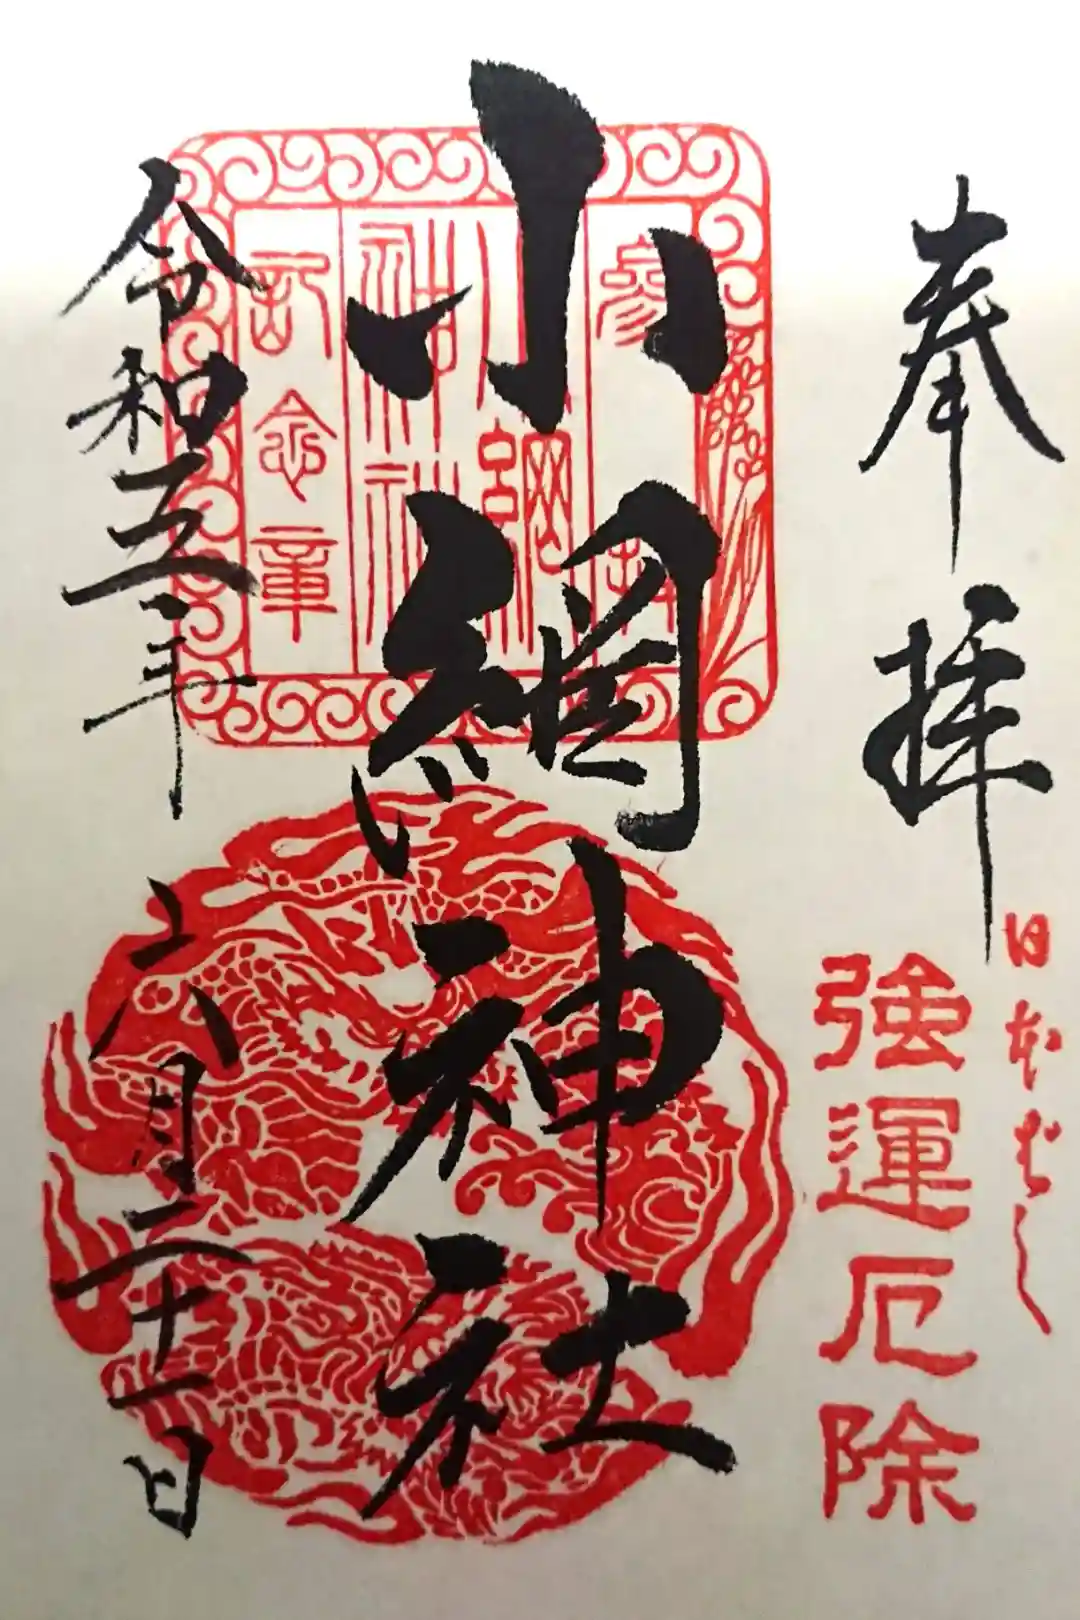 奉拝
日本ばし
強運厄除
小網神社
参拝
小網
神社
記念章
令和五年
六月二十一日